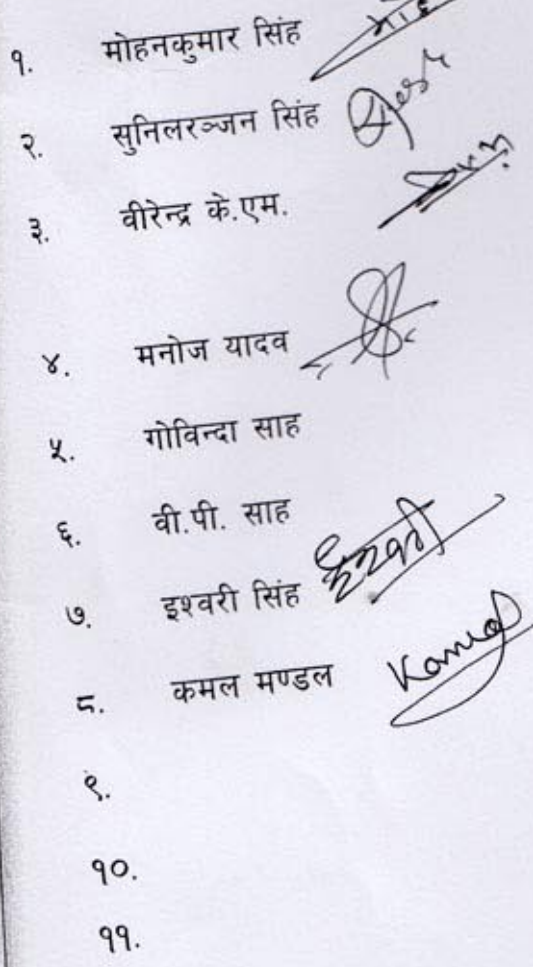 १. मोहनकुमार सिंह
२. सुनिलरञ्जन सिंह
३. वीरेन्द्र के.एम.
४. मनोज यादव
५. गोविन्दा साह
६. वी.पी. साह
७. इश्वरी सिंह इश्वरी
८. कमल मण्डल Kamal
९.
१०.
११.